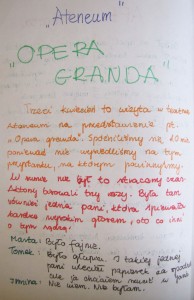 „Ateneum"
„OPERA
GRANDA"
Trzeci kwiecień to wizyta w teatrze
Ateneum na przedstawieniu pt.
„Opera granda". Spóźniliśmy się 10 min
ponieważ nie wysiedliśmy na tym
przystanku, na którym powinniśmy.
W sumie nie był to stracony czas.
Aktorzy tarowali trzy osoby. Była tam
również jedna pani, która śpiewała
bardzo wysokim głosem, oto co inni
o tym sądzą:
Marta: Było fajnie.
Tomek: Było głupio. Z takiej jednej
pani uleciał
Janina: Nie wiem. Nie byłam.